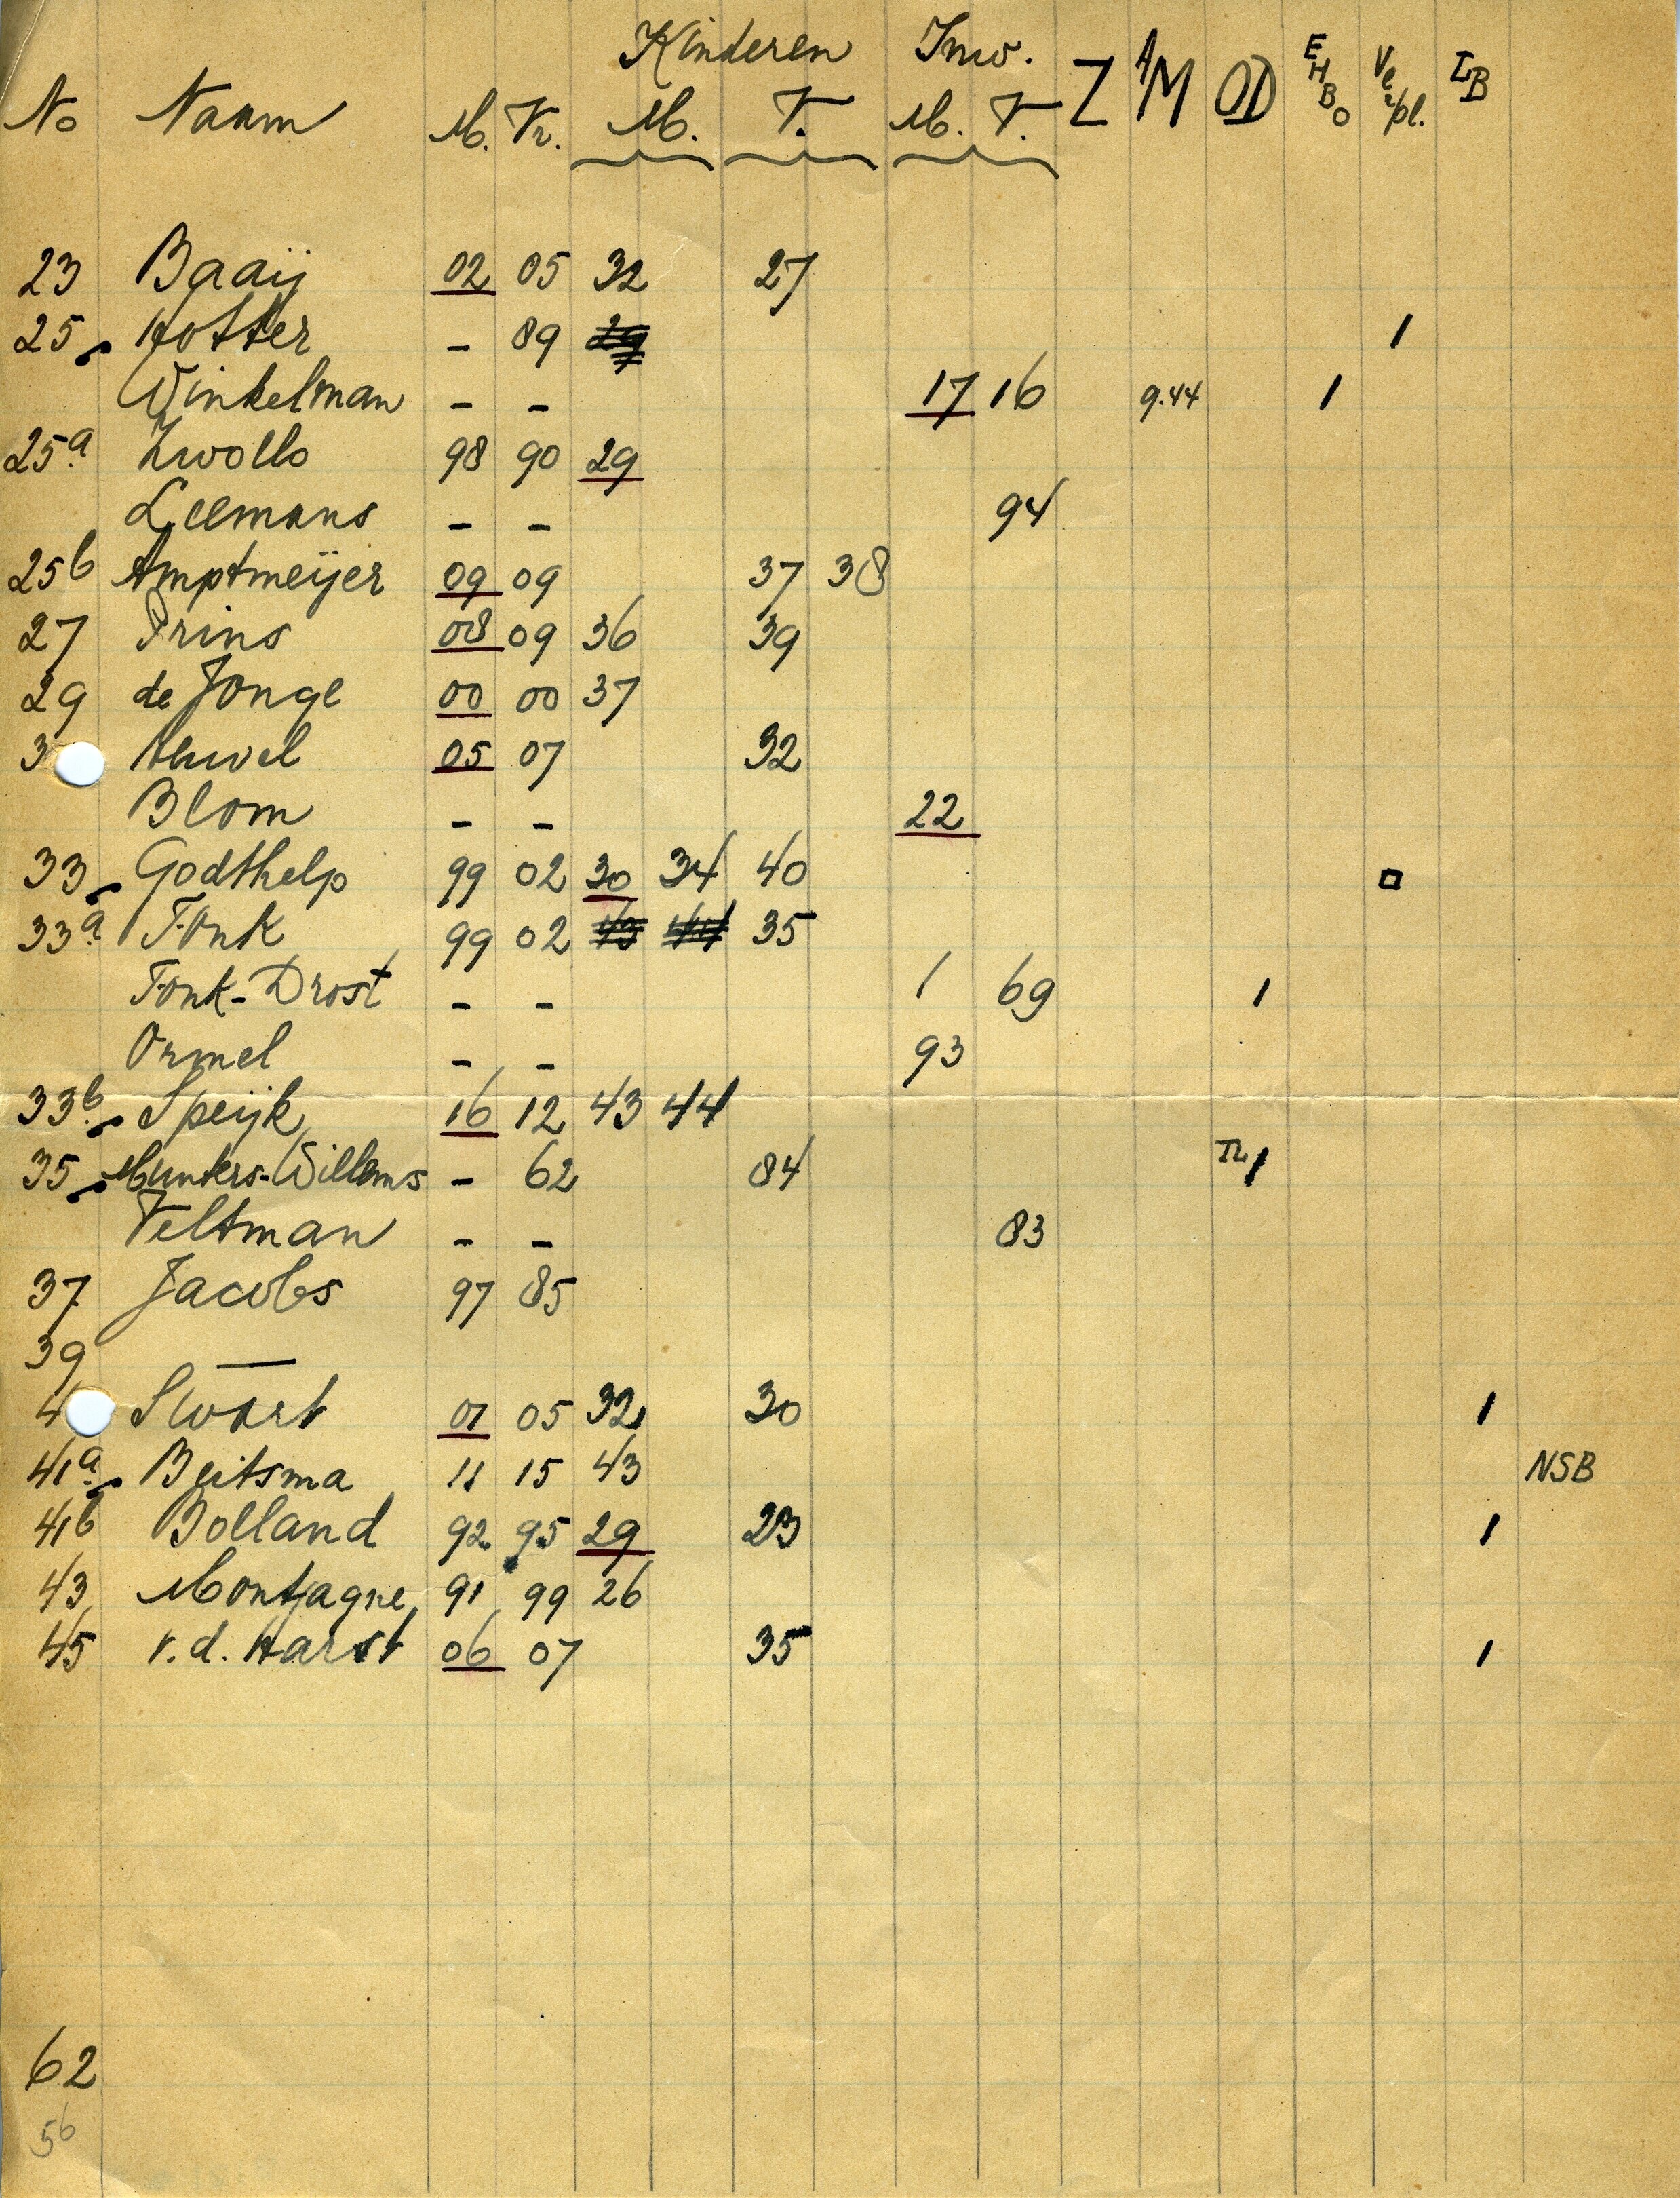 Kinderen Inw.
No Naam M. Vr. M. V. M. V. Z AM OD EHBO Verpl. LB
23 Baaij 02 05 32 27
25 Hotter - 89 29 1
Winkelman - - 17 16 9.44 1
25a. Zwollo 98 90 29
Leemans - - 94
25b Amptmeijer 09 09 37 38
27 Prins 08 09 36 39
29 de Jonge 00 00 37
3 05 07 32
Blom - - 22
33 Godthelp 99 02 30 34 40
33a. Fonk 99 02 43 44 35
Fonk-Drost - - 1 69 1
Ormel - - 93
33b. Speijk 16 12 43 44
35 Munters-Willems - 62 84 1
Veltman - - 83
37 Jacobs 97 85
39 —
4 Swart 01 05 32 30 1
41a. Beitsma 11 15 43 NSB
41b Bolland 92 95 29 23 1
43 Montagne 91 99 26
45 v.d. Harst 06 07 35 1
62
56